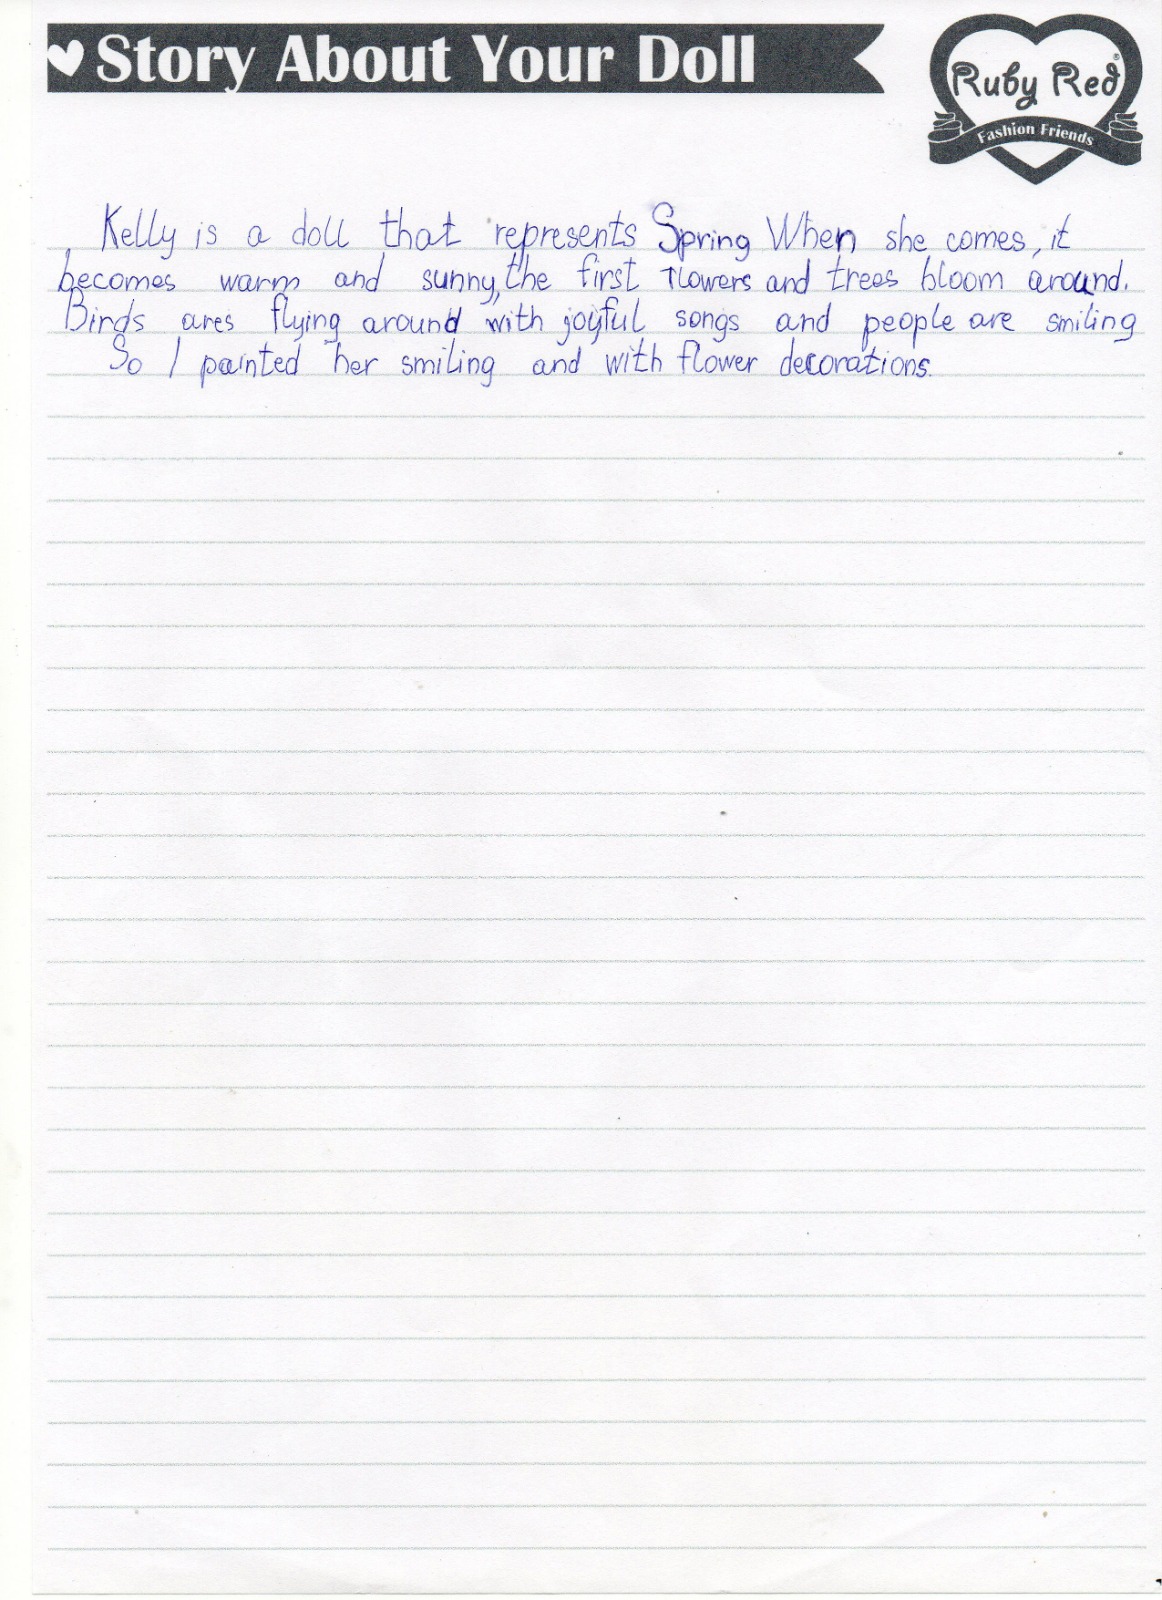 Story About Your Doll
Ruby Red®
Fashion Friends
Kelly is a doll that represents Spring When she comes, it
becomes warm and sunny, the first flowers and trees bloom around.
Birds ares flying around with joyful songs and people are smiling
So I painted her smiling and with flower decorations.